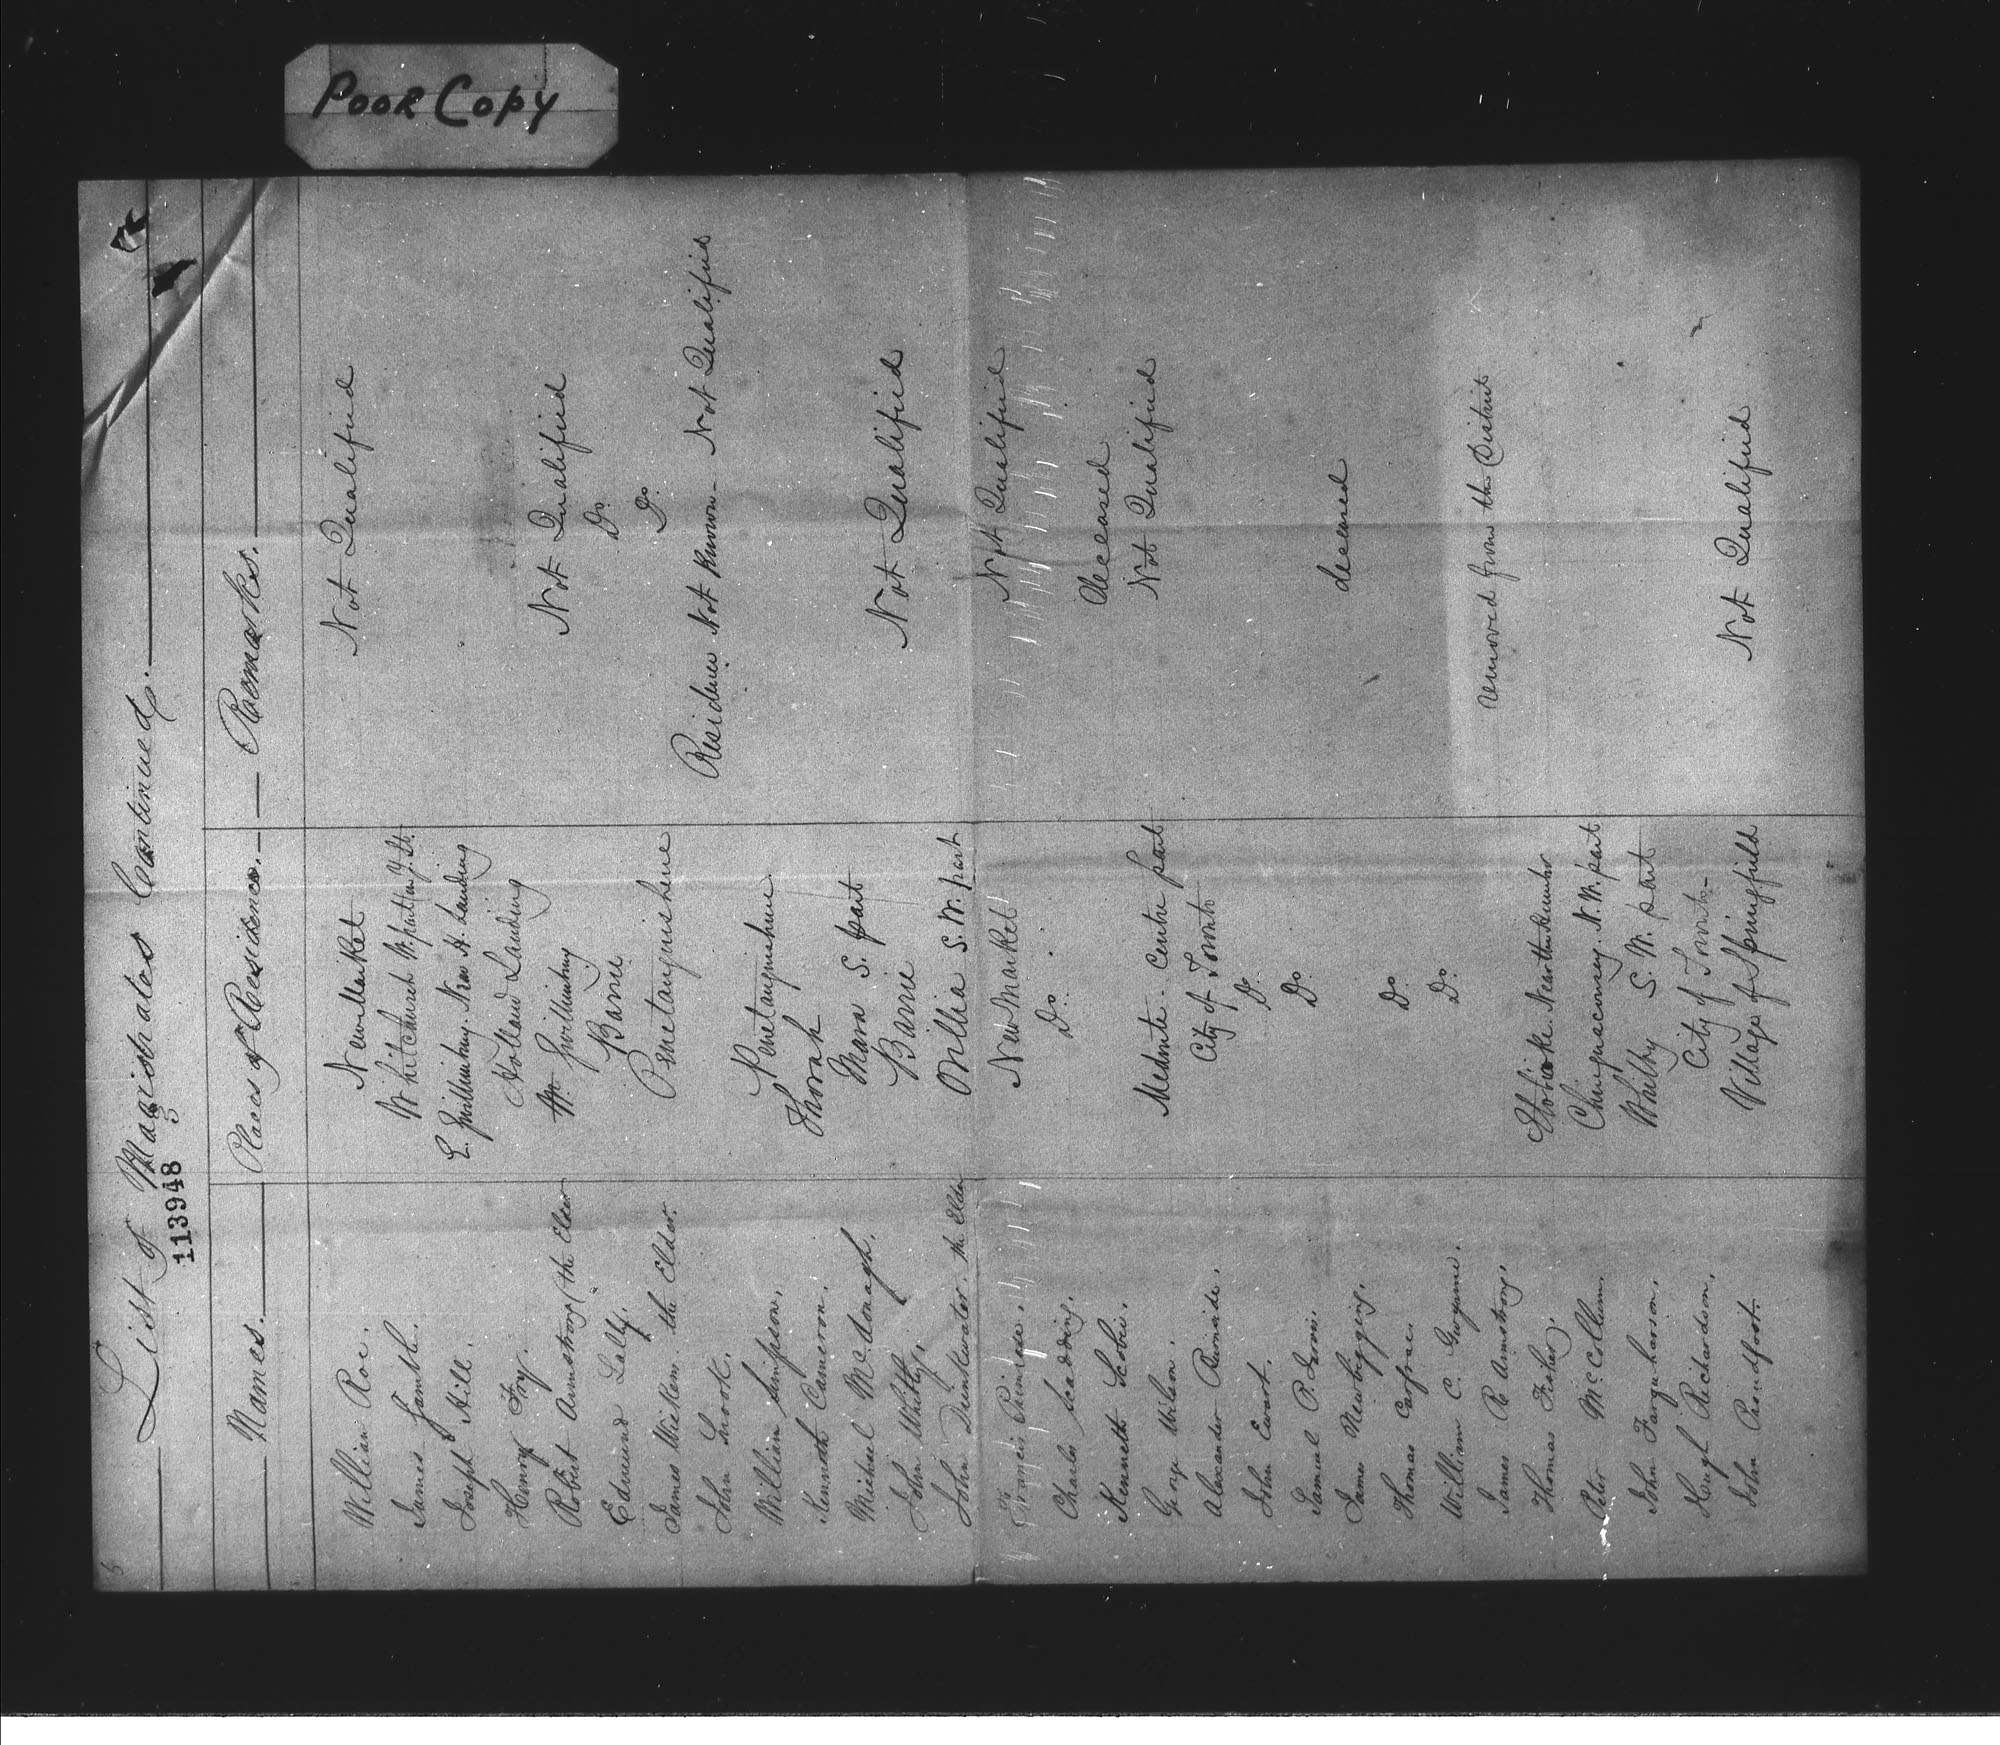 Poor Copy
List of Magistrates Continued.
113948
5
Names. Places of Residence. Remarks.
William Roe. Newmarket Not Qualified
James Gamble. Whitchurch W. part on Y. St.
Joseph Hill. E. Gwillimbury. Near H. Landing
Henry Fry. Holland Landing
Robert Armstrong (the Elder W. Gwillimbury Not Qualified
Edmund Lally. Barrie Do.
James Wickens. the Elder. Penetanguishene Do.
John Snook. Residence Not Known - Not Qualified
William Simpson. Penetanguishene.
Kenneth Cameron. Thorah
Michael McDonagh. Mara S. part
John Whitty. Barrie Not Qualified
John Drinkwater. the Elder Orillia S. W. part
Francis Primrose. Newmarket Not Qualified
Charles Scadding. Do.
Kenneth Scobie. Deceased
George Wilson. Medonte. Centre part Not Qualified
Alexander Burnside. City of Toronto
John Ewart. Do.
Samuel P. Jarvis. Do.
James Newbigging. deceased
Thomas Carfrae. Do.
William C. Gwynne. Do.
James R Armstrong. removed from the District
Thomas Fisher. Etobicoke. Near the Humber
Peter McCollum. Chinguacousey. N. W. part
John Farquharson. Whitby S. W. part
Hugh Richardson. City of Toronto -
John Proudfoot. Village of Springfield Not Qualified